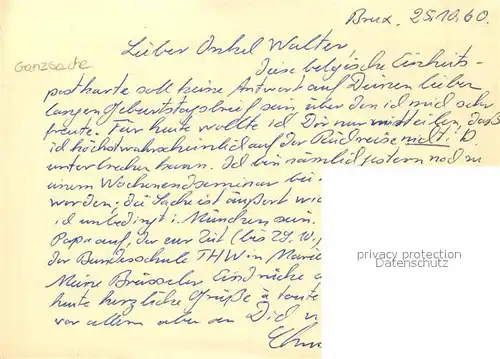 Brux. 25.10.60.
Ganzsache
Lieber Onkel Walter,
diese belgische Einheits-
postkarte soll keine Antwort auf Deinen lieben
langen Geburtstagsbrief sein, über den ich mich sehr
freute. Für heute wollte ich Dir nur mitteilen, daß
ich höchstwahrscheinlich auf der Rückreise nicht i. D
unterbrechen kann. Ich bin nämlich gestern noch zu
einem Wochenendseminar bei
worden; die Sache ist äußerst wic
ich unbedingt i. München sein.
Papa auf, der zur Zeit (bis 29.10.,
der Bundesschule THW in Marie
Meine Brüsseler Eindrücke
heute herzliche Grüße à toute
vor allem aber an Dich
privacy protection
Datenschutz